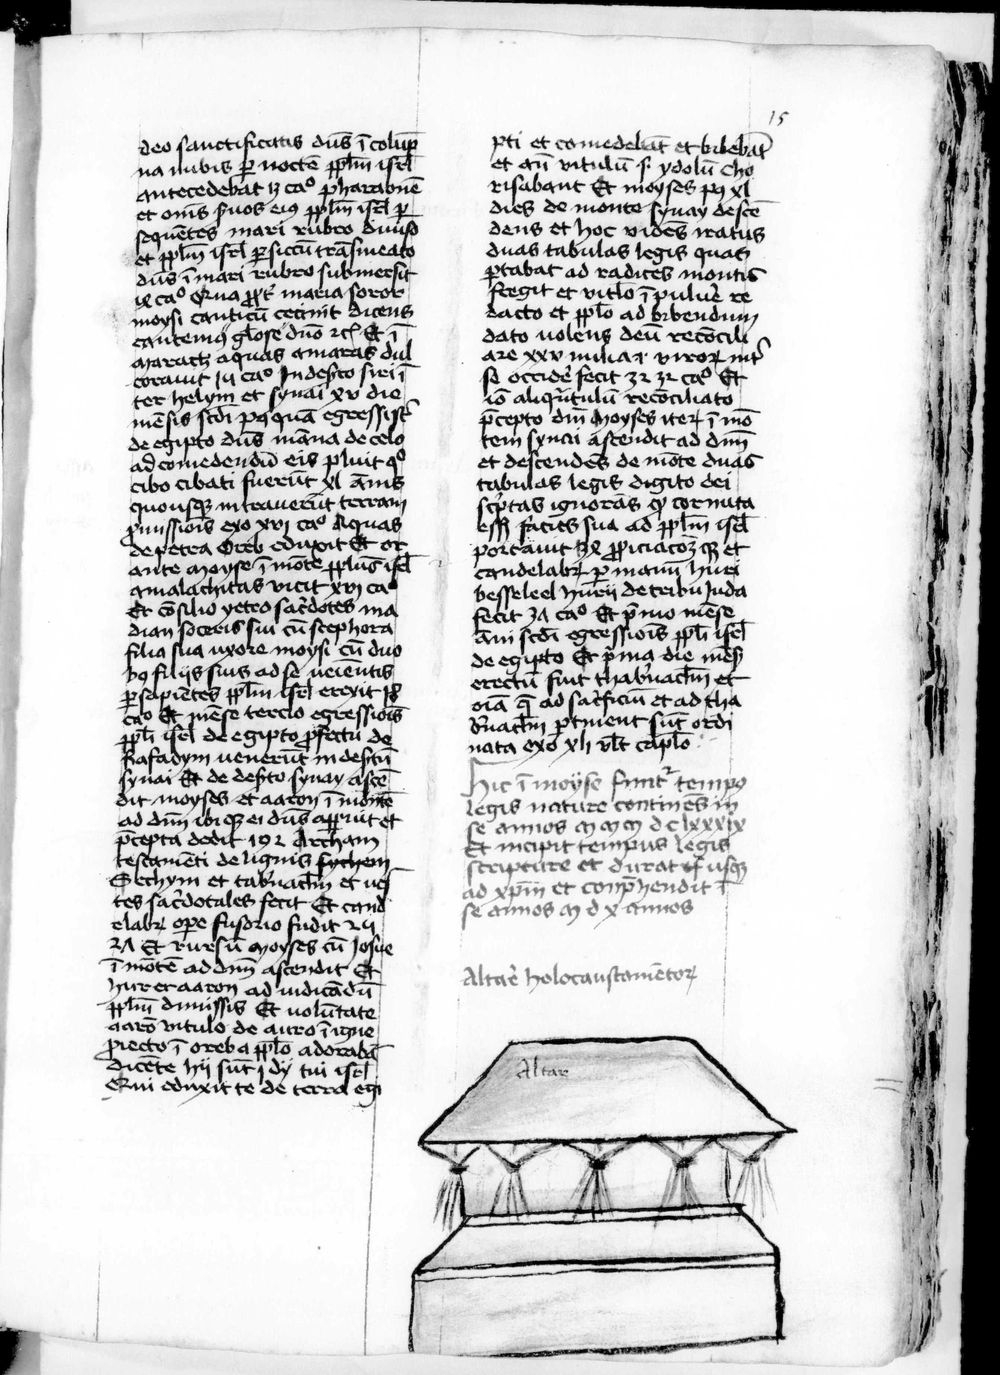 15
deo sanctificatis dūs ī colup
na nubis ꝑ noctē pplm̄ isrl̄
antecedebat 13 caº pharaonē
et om̄s s̄uos eiꝰ pplm̄ isrl̄ ꝑ
sequētes mari rubro diuiso
et pplm̄ isrl̄ ꝑ siccū trāsmeato
dūs ī mari rubro submersit
caº maria soror
moysi canticū cecinit dicens
cantemꝰ gl̄ose dūo Et ī
Marath aquas amaras dul
corauit caº In desto siri ī
ter helym et synai xv die
mēsis scdī pꝰ quā egressi sūt
de egipto dūs māna de celo
ad comedendū eis pluit qº
cibo cibati fuerūt xl ānis
quousqꝫ intrauerūt terram
ꝓmissiōis exo xvi caº Aquas
de petra Oreb eduxit Et or
ante Moyse ī mōte pplus isrl̄
amalachitas vicit xvi caº
Et cōsilio yetro sac̄dotes ma
dian soceris sui cū scephora
filia sua vxore moysi cū duo
bꝰ filijs suis ad se veniētis
ꝑ sapiētes pplm̄ isrl̄ erexit
caº Et mēse tercio egressiōis
ppli isrl̄ de egipto ꝓfectū de
Rafadym uenerūt in destū
synai Et de desto synay ascē
dit moyses et aaron ī montē
ad dm̄ ibiqꝫ ei dūs apparuit et
p̄cepta dedit 19 2 Archam
testamēti de lignis sychem
Sechym et tab̄nac̄lm et ues
tes sac̄dotales fecit Et cand
elabꝝ oꝑe fusorio fudit
Et rursū Moyses cū Josue
ī mōtē ad dm̄ ascendit Et
hur et aaron ad iudicādū
pplm̄ dimissis Et uolūtate
aarō vitulo de auro ī igne
ꝓiecto ī oreb a pplo adorabā
dicēte hij sūt dy tui isrl̄
Qui eduxit te de terra egi
pti et comedebāt et bibebāt
et cū vitulū s̄ ydolū cho
risabant Et moyses pꝰ xl
dies de monte synay descē
dens et hoc vidēs iratus
duas tabulas legis quas
ꝑtabat ad radices montis
fregit et vitlo ī puluēr re
dacto et pplo ad bibendum
dato uolens deū recōcili
are xxv milia viroꝝ int̄
se occidē fecit caº Et
iō aliq̄tulū recōciliato
p̄cepto dm̄ Moyses iteꝝ ī mō
tem synai ascendit ad dm̄
et descendēs de mōte duas
tabulas legis digito dei
sc̄ptas ignorās qꝫ cornuta
esset facies sua ad pplm̄ isrl̄
portauit ꝓpiciatoꝝ qꝫ et
candelabꝝ ꝑ manū huri
besseleel hurij de tribu Juda
fecit caº Et p̄mo mēse
āni scdī egressiōis ppli isrl̄
de egipto Et p̄ma die mēs̄
erectū fuit thab̄nac̄lm et
oīa q̄ ad sac̄ficiū et ad tha
b̄nac̄lm ꝑtinent sūt ordi
nata exo xli vlt caplo
Hic ī moyse finit̄ tempꝰ
legis nature continēs in
se annos M M M dclxxxix
Et incipit tempus legis
scripture et durat usqꝫ
ad xpm̄ et conp̄hendit ī
se annos M d x annos
Altar̄e holocaustamētoꝝ
Altare